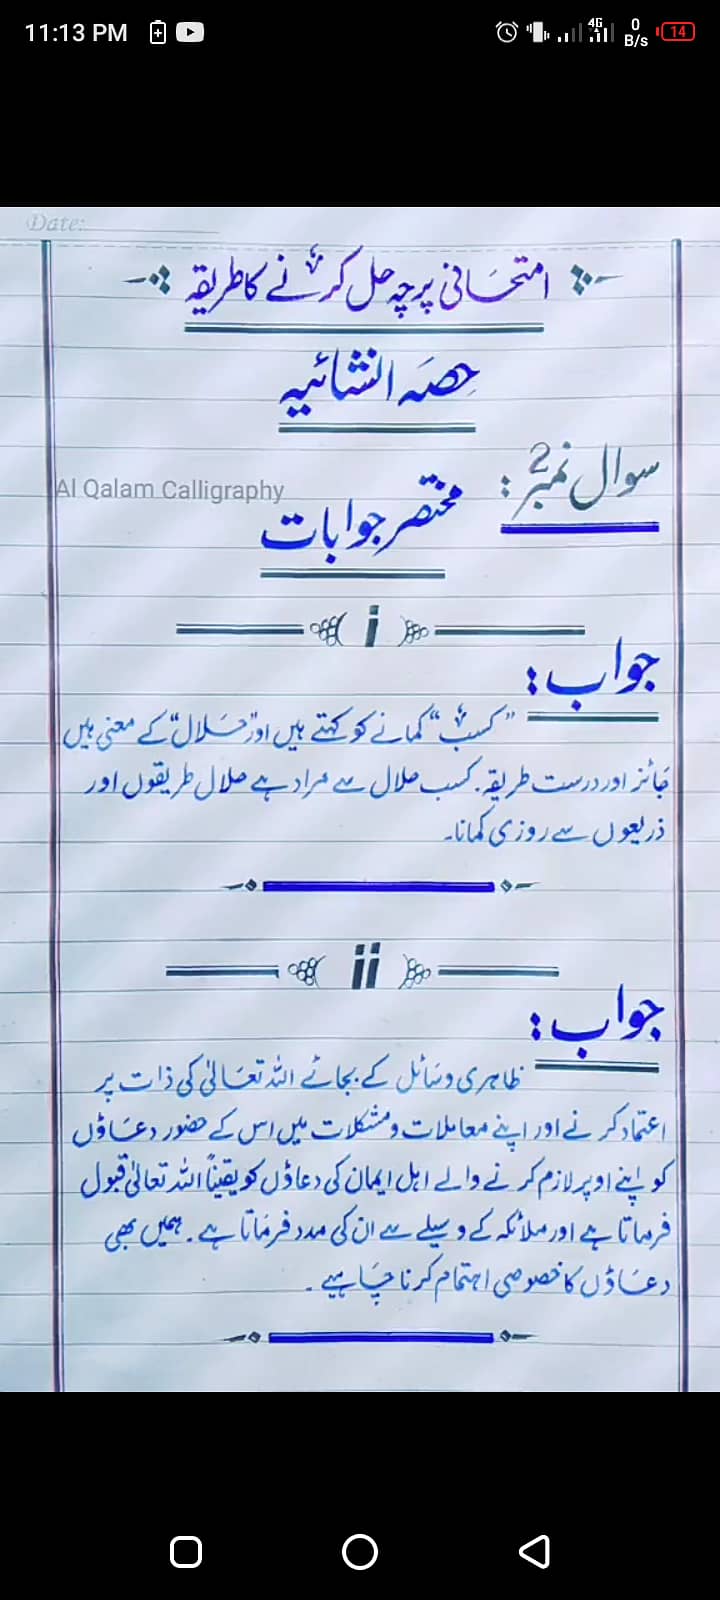 11:13 PM
4G 0 B/s 14
Date:
امتحانی پرچہ حل کرنے کا طریقہ
حصہ انشائیہ
سوال نمبر 2:
Al Qalam Calligraphy
مختصر جوابات
i
جواب:
"کسب" کمانے کو کہتے ہیں اور "حلال" کے معنی ہیں
جائز اور درست طریقہ. کسب حلال سے مراد ہے حلال طریقوں اور
ذریعوں سے روزی کمانا۔
ii
جواب:
ظاہری وسائل کے بجائے اللہ تعالیٰ کی ذات پر
اعتماد کرنے اور اپنے معاملات و مشکلات میں اس کے حضور دعاؤں
کو اپنے اوپر لازم کرنے والے اہل ایمان کی دعاؤں کو یقیناً اللہ تعالیٰ قبول
فرماتا ہے اور ملائکہ کے وسیلے سے ان کی مدد فرماتا ہے. ہمیں بھی
دعاؤں کا خصوصی اہتمام کرنا چاہیے.